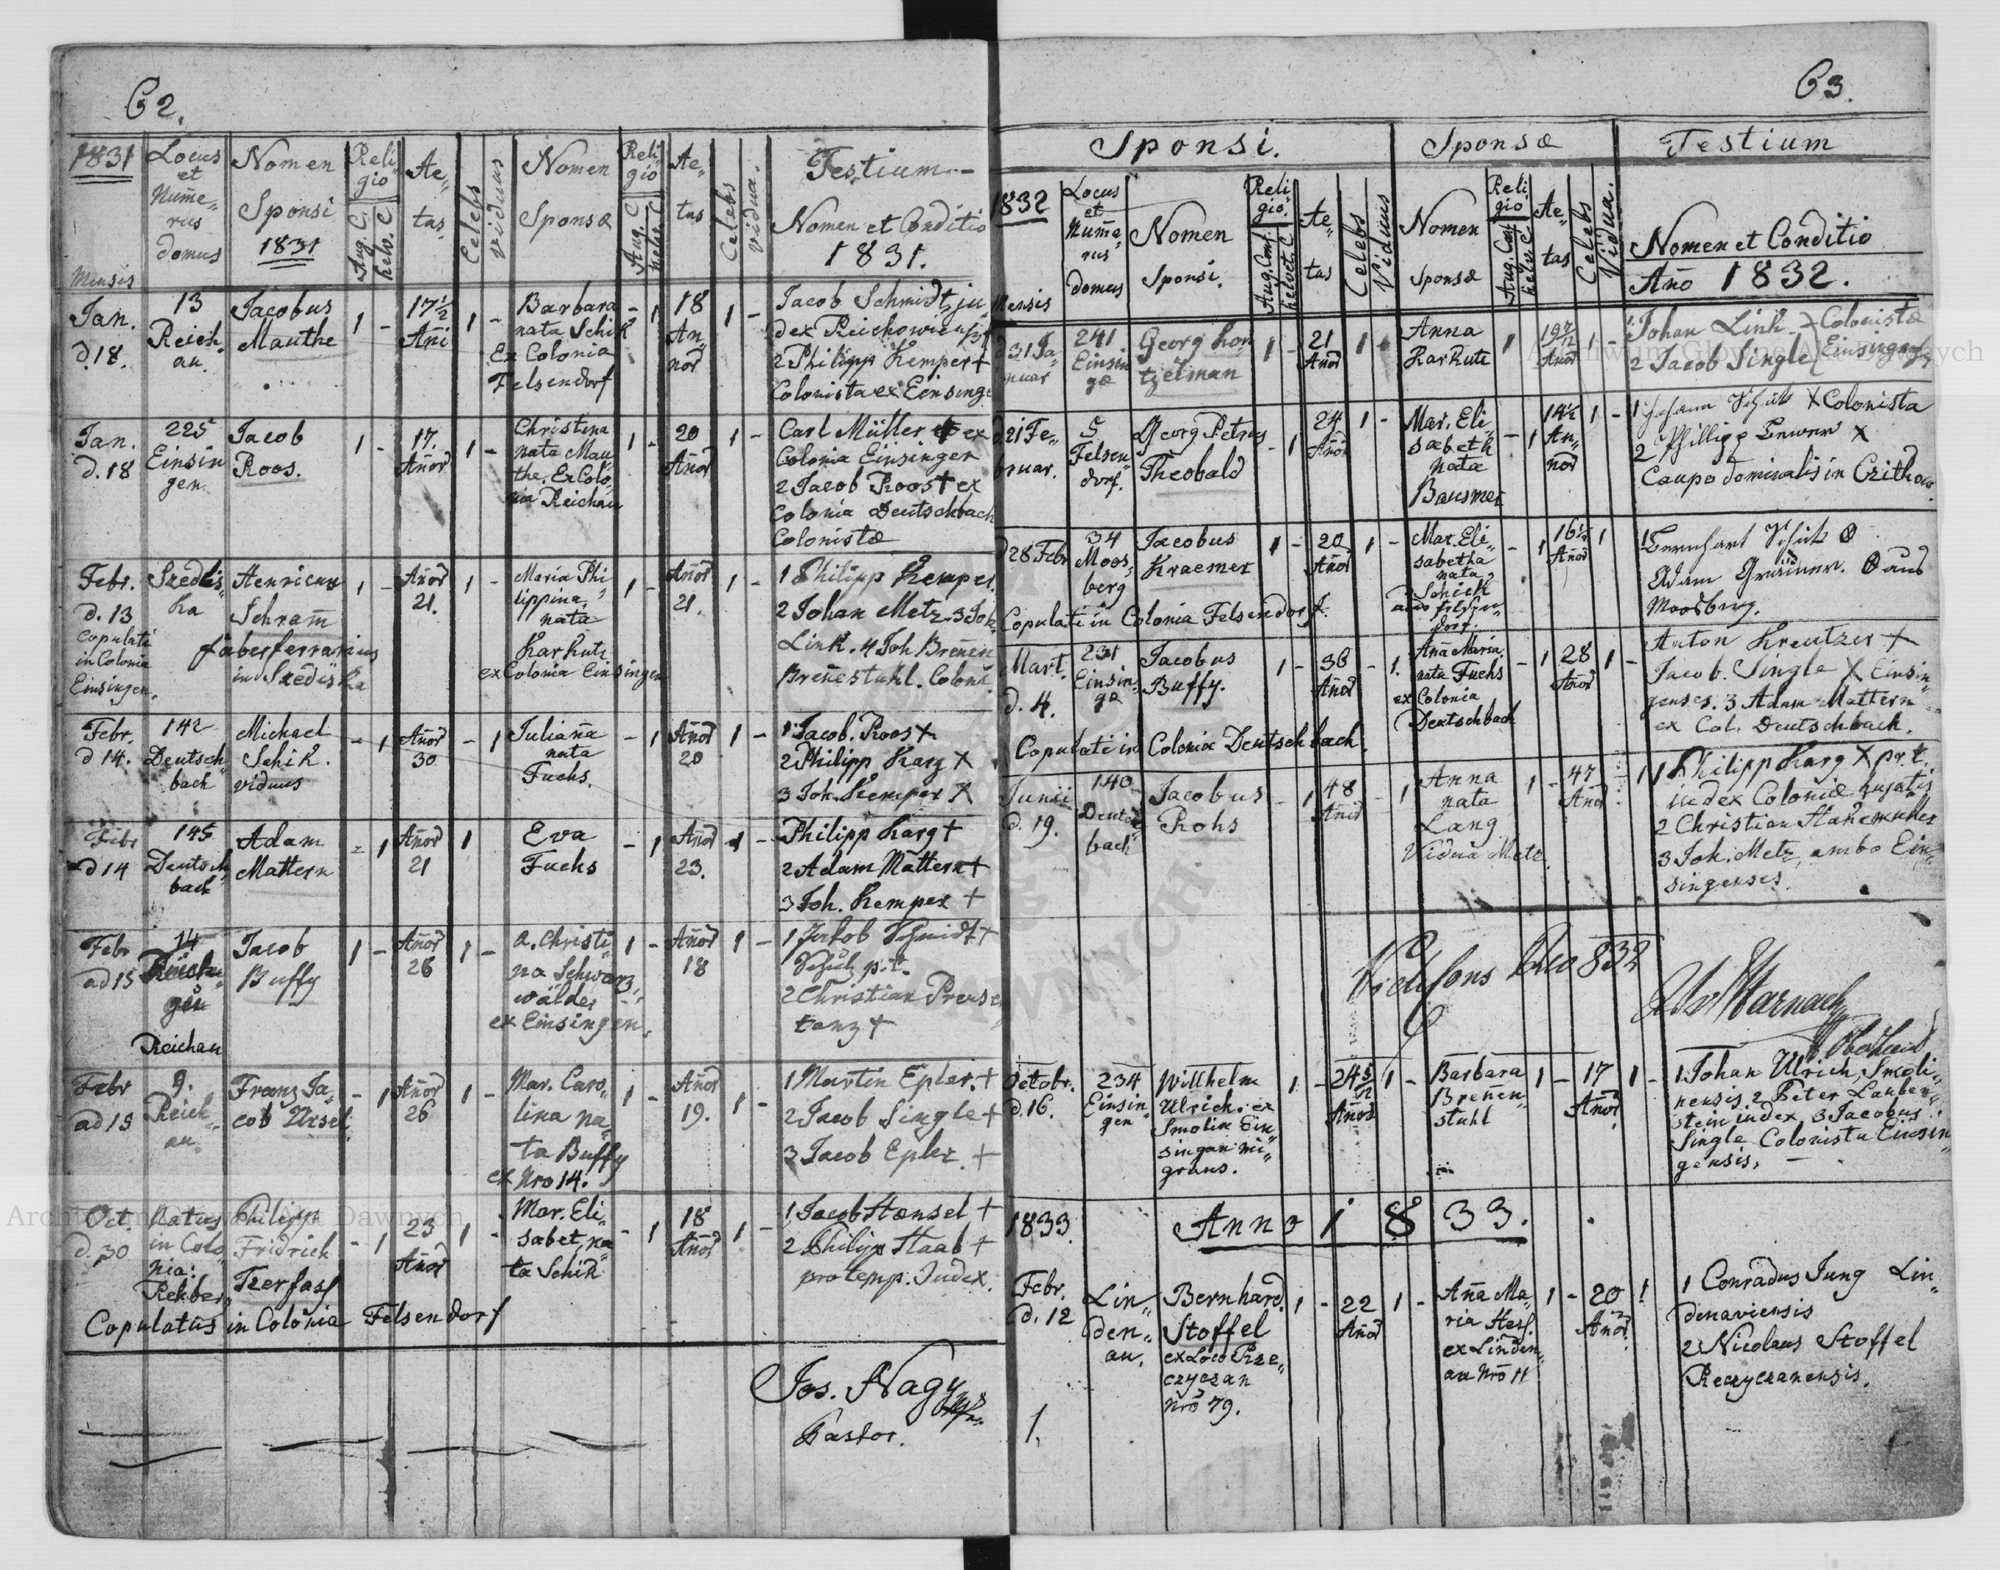 62.
1831
Locus et Nume„ rus domus
Nomen Sponsi 1831
Reli„ gio
Aug. C.
helv. C.
Ae„ tas
Celebs
viduus
Nomen Sponsæ
Reli„ gio
Aug. C
helv. C.
Ae„ tas
Celebs
vidua.
Testium.
Nomen et Conditio
1831.
Mensis
Jan. d. 18.
13 Reich„ au.
Jacobus Mauthe
1 -
17½ Añi
1 -
Barbara nata Schik Ex Colonia Felsendorf
- 1
18 An„ nor
1 -
Jacob Schmidt, ju„
dex Reichowiensis
2 Philipp Kemper +
Colonista ex Einsinge
Jan. d. 18
225 Einsin gen
Jacob Roos.
1 -
17. Añor
1 -
Christina nata Mau„ the. Ex Colo„ nia Reichau
1 -
20 Añor
1 -
Carl Müller ex
Colonia Einsingen
2 Jacob Roos + ex
Colonia Deutschbach
Colonistæ
Febr. d. 13 Copulati in Colonia Einsingen.
Szedlis„ ka
Henricus Schram faber ferrarius in Szediska
1 -
Añor 21.
1 -
Maria Phi„ lippina, nata Karkutz ex Colonia Einsingen
1 -
Añor 21.
1 -
1 Philipp Kemper.
2 Johan Metz. 3 Joh.
Link. 4 Joh. Breñen
Breñestuhl. Coloni.
Febr. d 14.
142 Deutsch„ bach
Michael Schik. viduus
- 1
Añor 30
- 1
Juliaña nata Fuchs.
- 1
Añor 20
1 -
1 Jacob. Roos +
2 Philipp Karg X
3 Joh. Kemper X
Febr d 14
145 Deutsch„ bach
Adam Mattern
- 1
Añor 21
1
Eva Fuchs
- 1
Añor 23.
1 -
Philipp Karg +
2 Adam Mattern +
3 Joh. Kemper +
Febr ad 15
14 Reichau
Jacob Buffy
1 -
Añor 26
1 -
A. Christi„ na Schwarz„ wälder ex Einsingen.
1 -
Añor 18
1 -
1 Jakob Schmidt +
Schulz p.t.
2 Christian Preuse
tanz +
Febr ad 19
9. Reich„ au
Franz Ja„ cob Ursel
- 1
Añor 26
1 -
Mar. Caro„ lina na„ ta Buffy ex Nro 14.
1 -
Añor 19.
1 -
1 Martin Epler. +
2 Jacob Single +
3 Jacob Epler. +
Oct. d. 30
Natus in Colo„ nia: Rehber„
Philipp Fridrich Tzerfass
- 1
23 Añor
1 -
Mar. Eli„ sabet, na„ ta Schik
- 1
18 Añor
1 -
1 Jacob Hænsel +
2 Philipp Staab +
pro temp. Judex.
Copulatus in Colonia Felsendorf
Jos. Nagy
Pastor.
63.
Sponsi.
Sponsæ
Testium
1832
Mensis
Locus et Nume„ rus domus
Nomen Sponsi.
Reli„ gio.
Aug. Conf.
helvet. C.
Ae„ tas
Celebs
Viduus
Nomen Sponsæ
Reli„ gio.
Aug. Conf
helv. C.
Ae„ tas
Celebs
Vidua.
Nomen et Conditio
Año 1832.
d 31 Ja„ nuar
241 Einsin„ gæ
Georg Kon„ tzelman
1 -
21 Añor
1 -
Anna Karkutz
1
19 7/12 Añor
1 -
1. Johan Link. Colonistæ
2 Jacob Single Einsingens
d 21 Fe„ bruar.
5 Felsen„ dorf.
Georg Petrus Theobald
- 1
24 Añor
1 -
Mar. Eli„ sabeth nata Bausmer
- 1
14½ An„ nor
1 -
1 Johann Schik X Colonista
2 Phillipp X
Caupo dominalis in
d 28 Febr
34 Moos„ berg
Jacobus Kraemer
1 -
20. Añor
1 -
Mar. Eli„ sabetha nata Schick aus Felsen„ dorf.
- 1
16½ Añor
1
1 Bernhart Schik
Adam aus
Moosberg.
Copulati in Colonia Felsendorf.
Mart. d. 4.
231 Einsin„ gæ
Jacobus Buffy.
1 -
36 Añor
- 1.
Aña Maria, nata Fuchs ex Colonia Deutschbach
- 1
28 Añor
1 -
Anton Kreutzer +
Jacob. Single X Einsin„
genses. 3 Adam Mattern
ex Col. Deutschbach.
Copulati in Colonia Deutschbach.
Junii d. 19.
140 Deutsch„ bach
Jacobus Rohs
- 1
48 Añor
- 1
Anna nata Lang Vidua Metz.
1 -
47 Añor
1
1 Philipp Karg X pr. t.
judex Coloniæ hujatis
2 Christian
3 Joh. Metz, ambo Ein„
singenses.
832
Octobr. d. 16.
234 Einsin„ gen
Willhelm Ulrich. ex Smolin Ein„ singam mi„ grans.
1 -
24 5/12 Añor
1 -
Barbara Breñen„ stuhl
1 -
17 Añor
1 -
1. Johan Ulrich, Smoli„
nensis 2 Peter Lauben„
stein judex, 3 Jacobus
Single Colonista Einsin„
gensis.
1833.
Anno 1833.
Febr. d. 12
Lin„ den„ au.
Bernhard Stoffel ex Loco Rze„ czyczan Nro 79.
1 -
22 Añor
1 -
Aña Ma„ ria Hess. ex Linden„ au Nro 11
1 -
20 Añor.
1
1 Conradus Jung Lin„
denaviensis
2 Nicolaus Stoffel
Reczyczanensis.
1.
Archiwum Główne Akt Dawnych
Archiwum Główne Akt Dawnych